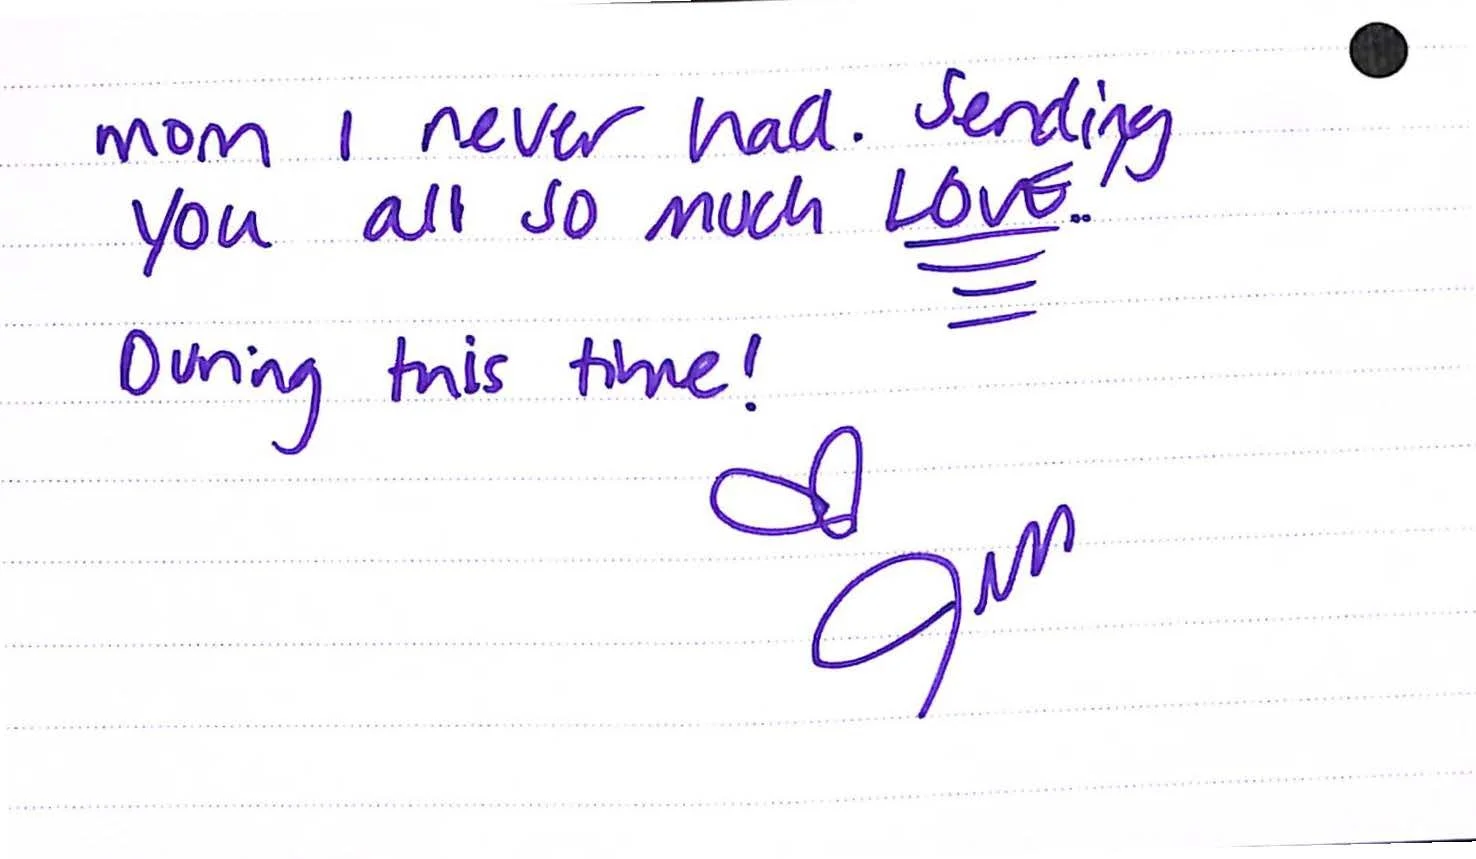 mom I never had. Sending
you all so much LOVE..
During this time!